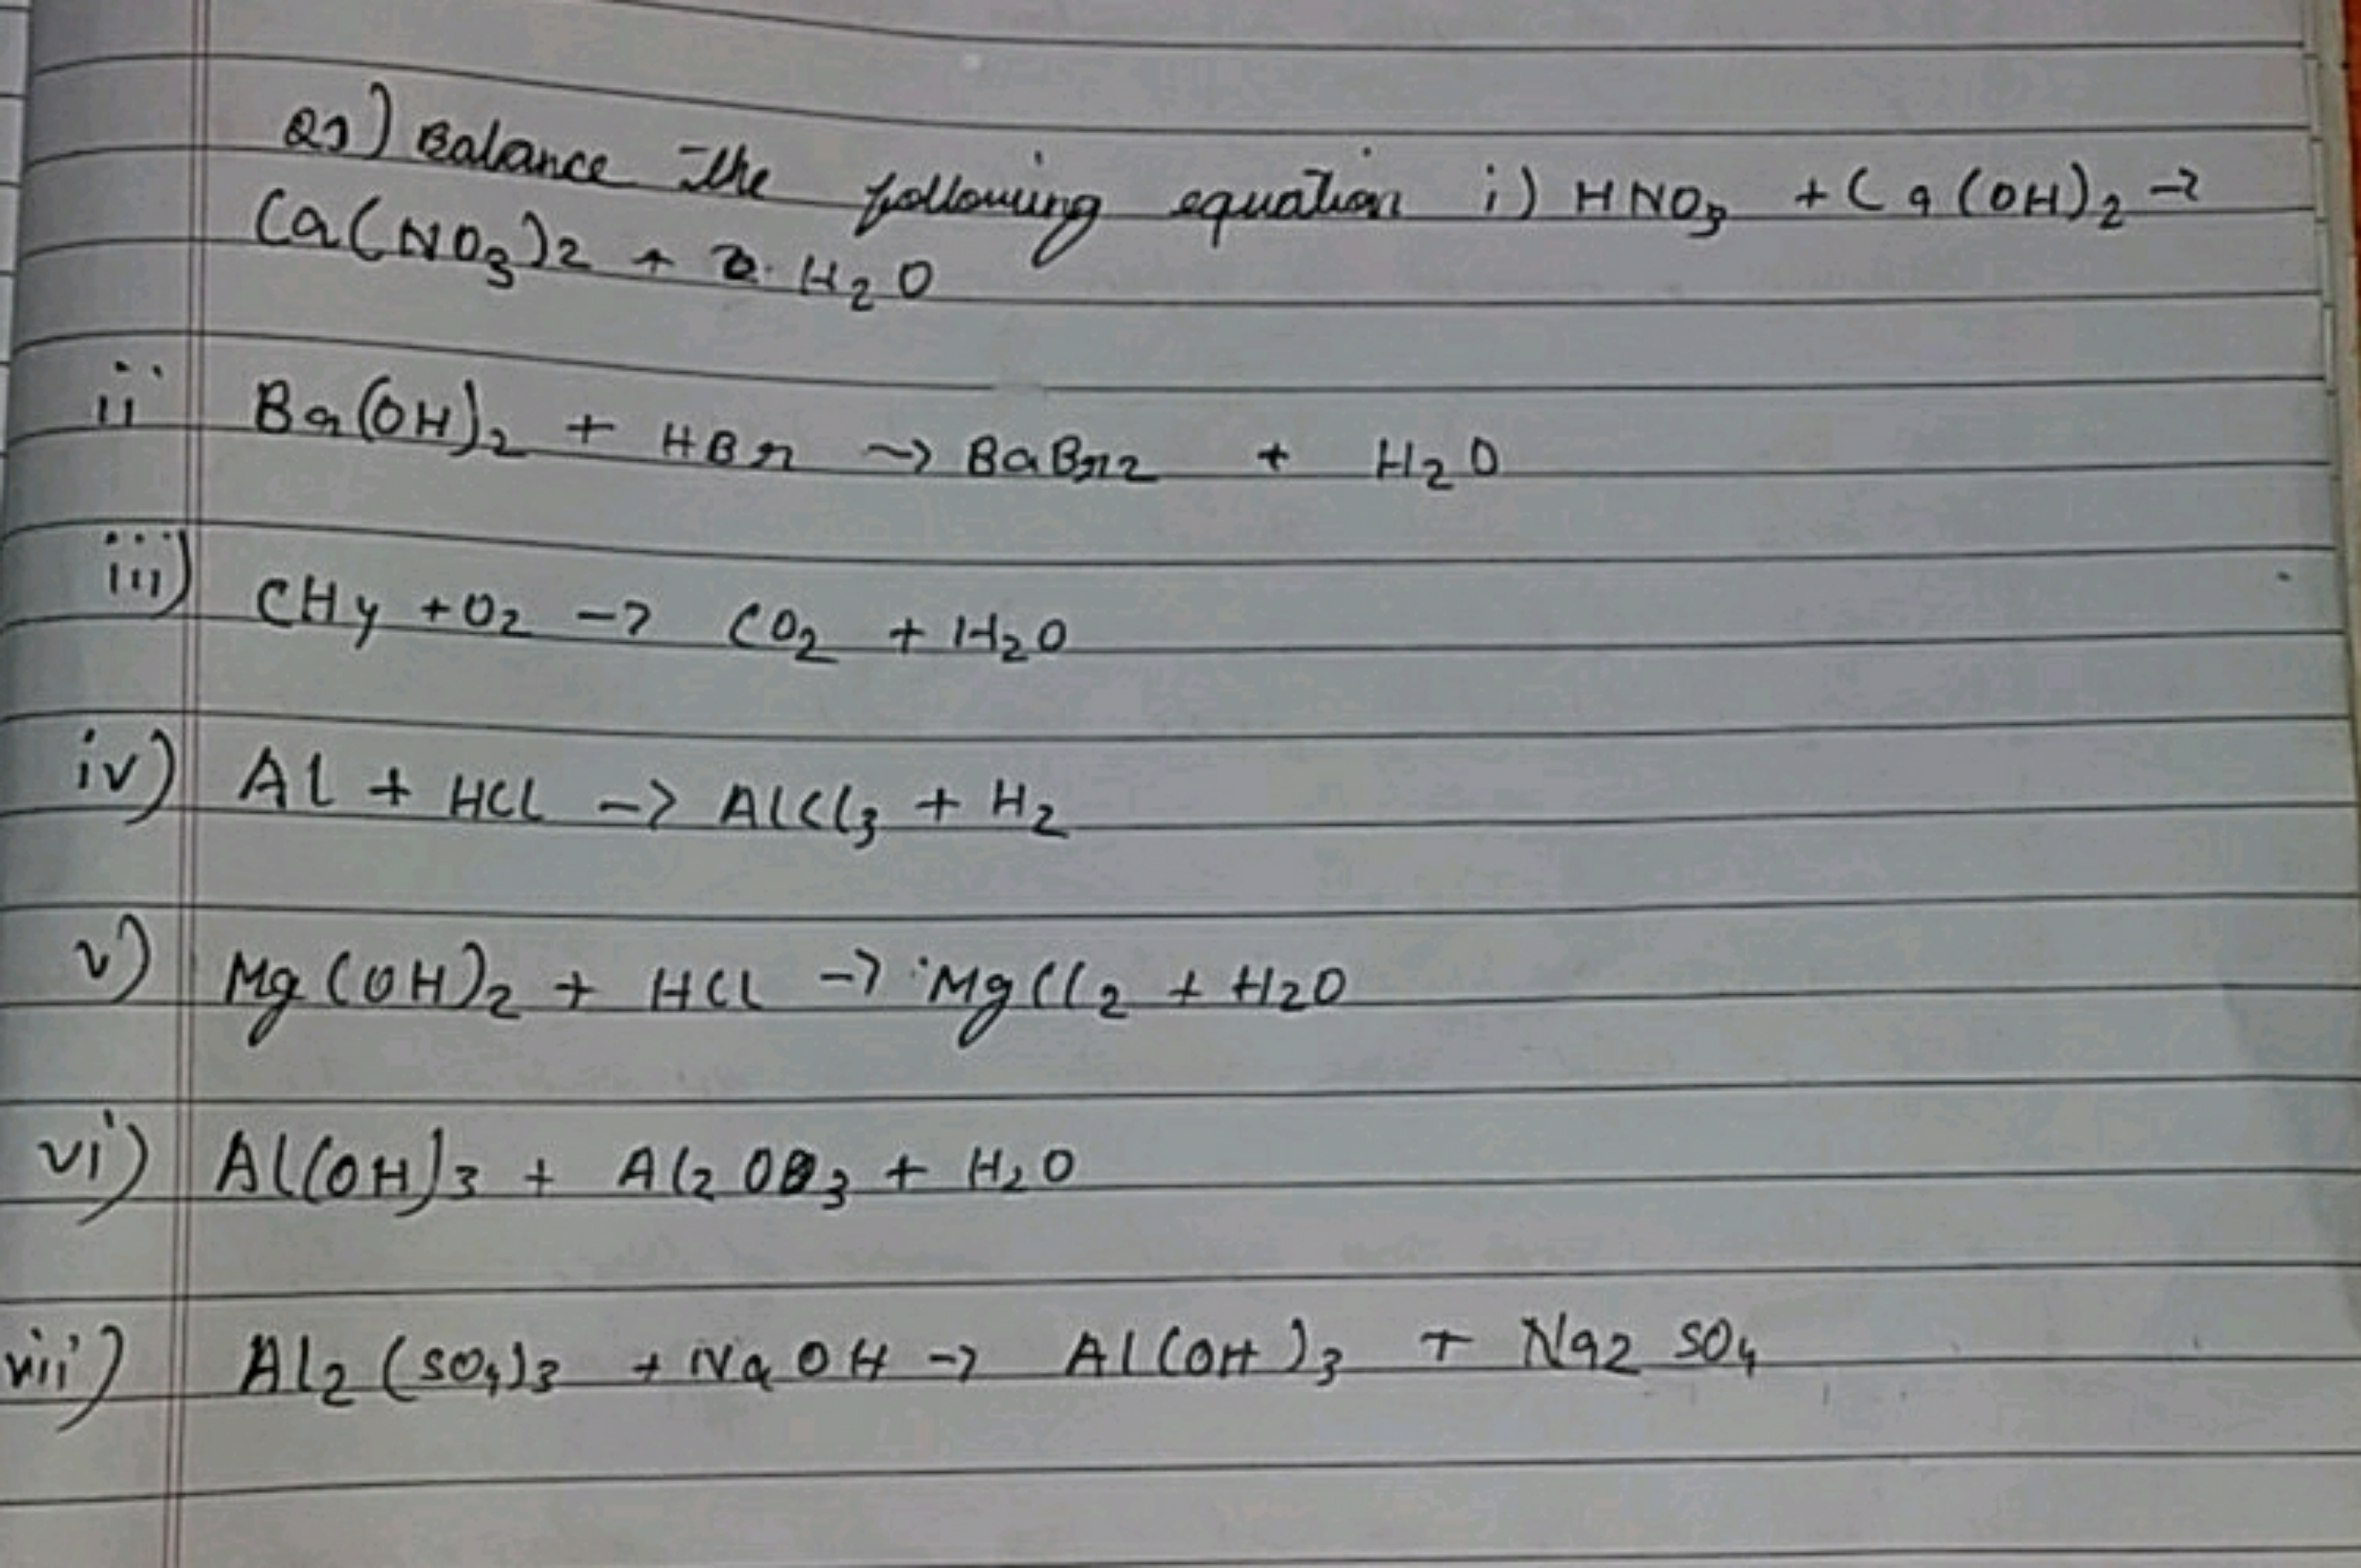 Q1) Balance the following equation i) HNO3 + Ca(OH)2 →
Ca(NO3)2 + 2 H2O
ii Ba(OH)2 + HBr → BaBr2 + H2O
iii) CH4 + O2 → CO2 + H2O
iv) Al + HCl → AlCl3 + H2
v) Mg(OH)2 + HCl → MgCl2 + H2O
vi) Al(OH)3 + Al2O3 + H2O
vii) Al2(SO4)3 + NaOH → Al(OH)3 + Na2SO4